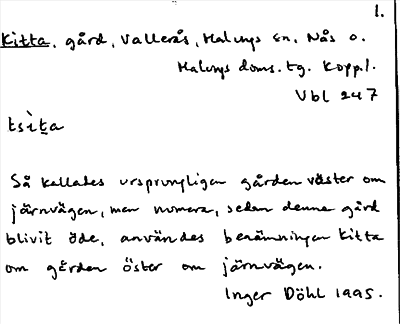 1.
Kitta, gård, Vallerås, Malungs sn, Nås o.
Malungs doms. tg. Kopp.l.
Vbl 247
tsìt̠a
Så kallades ursprungligen gården väster om
järnvägen, men numera, sedan denna gård
blivit öde, användes benämningen Kitta
om gården öster om järnvägen.
Inger Döhl 1995.